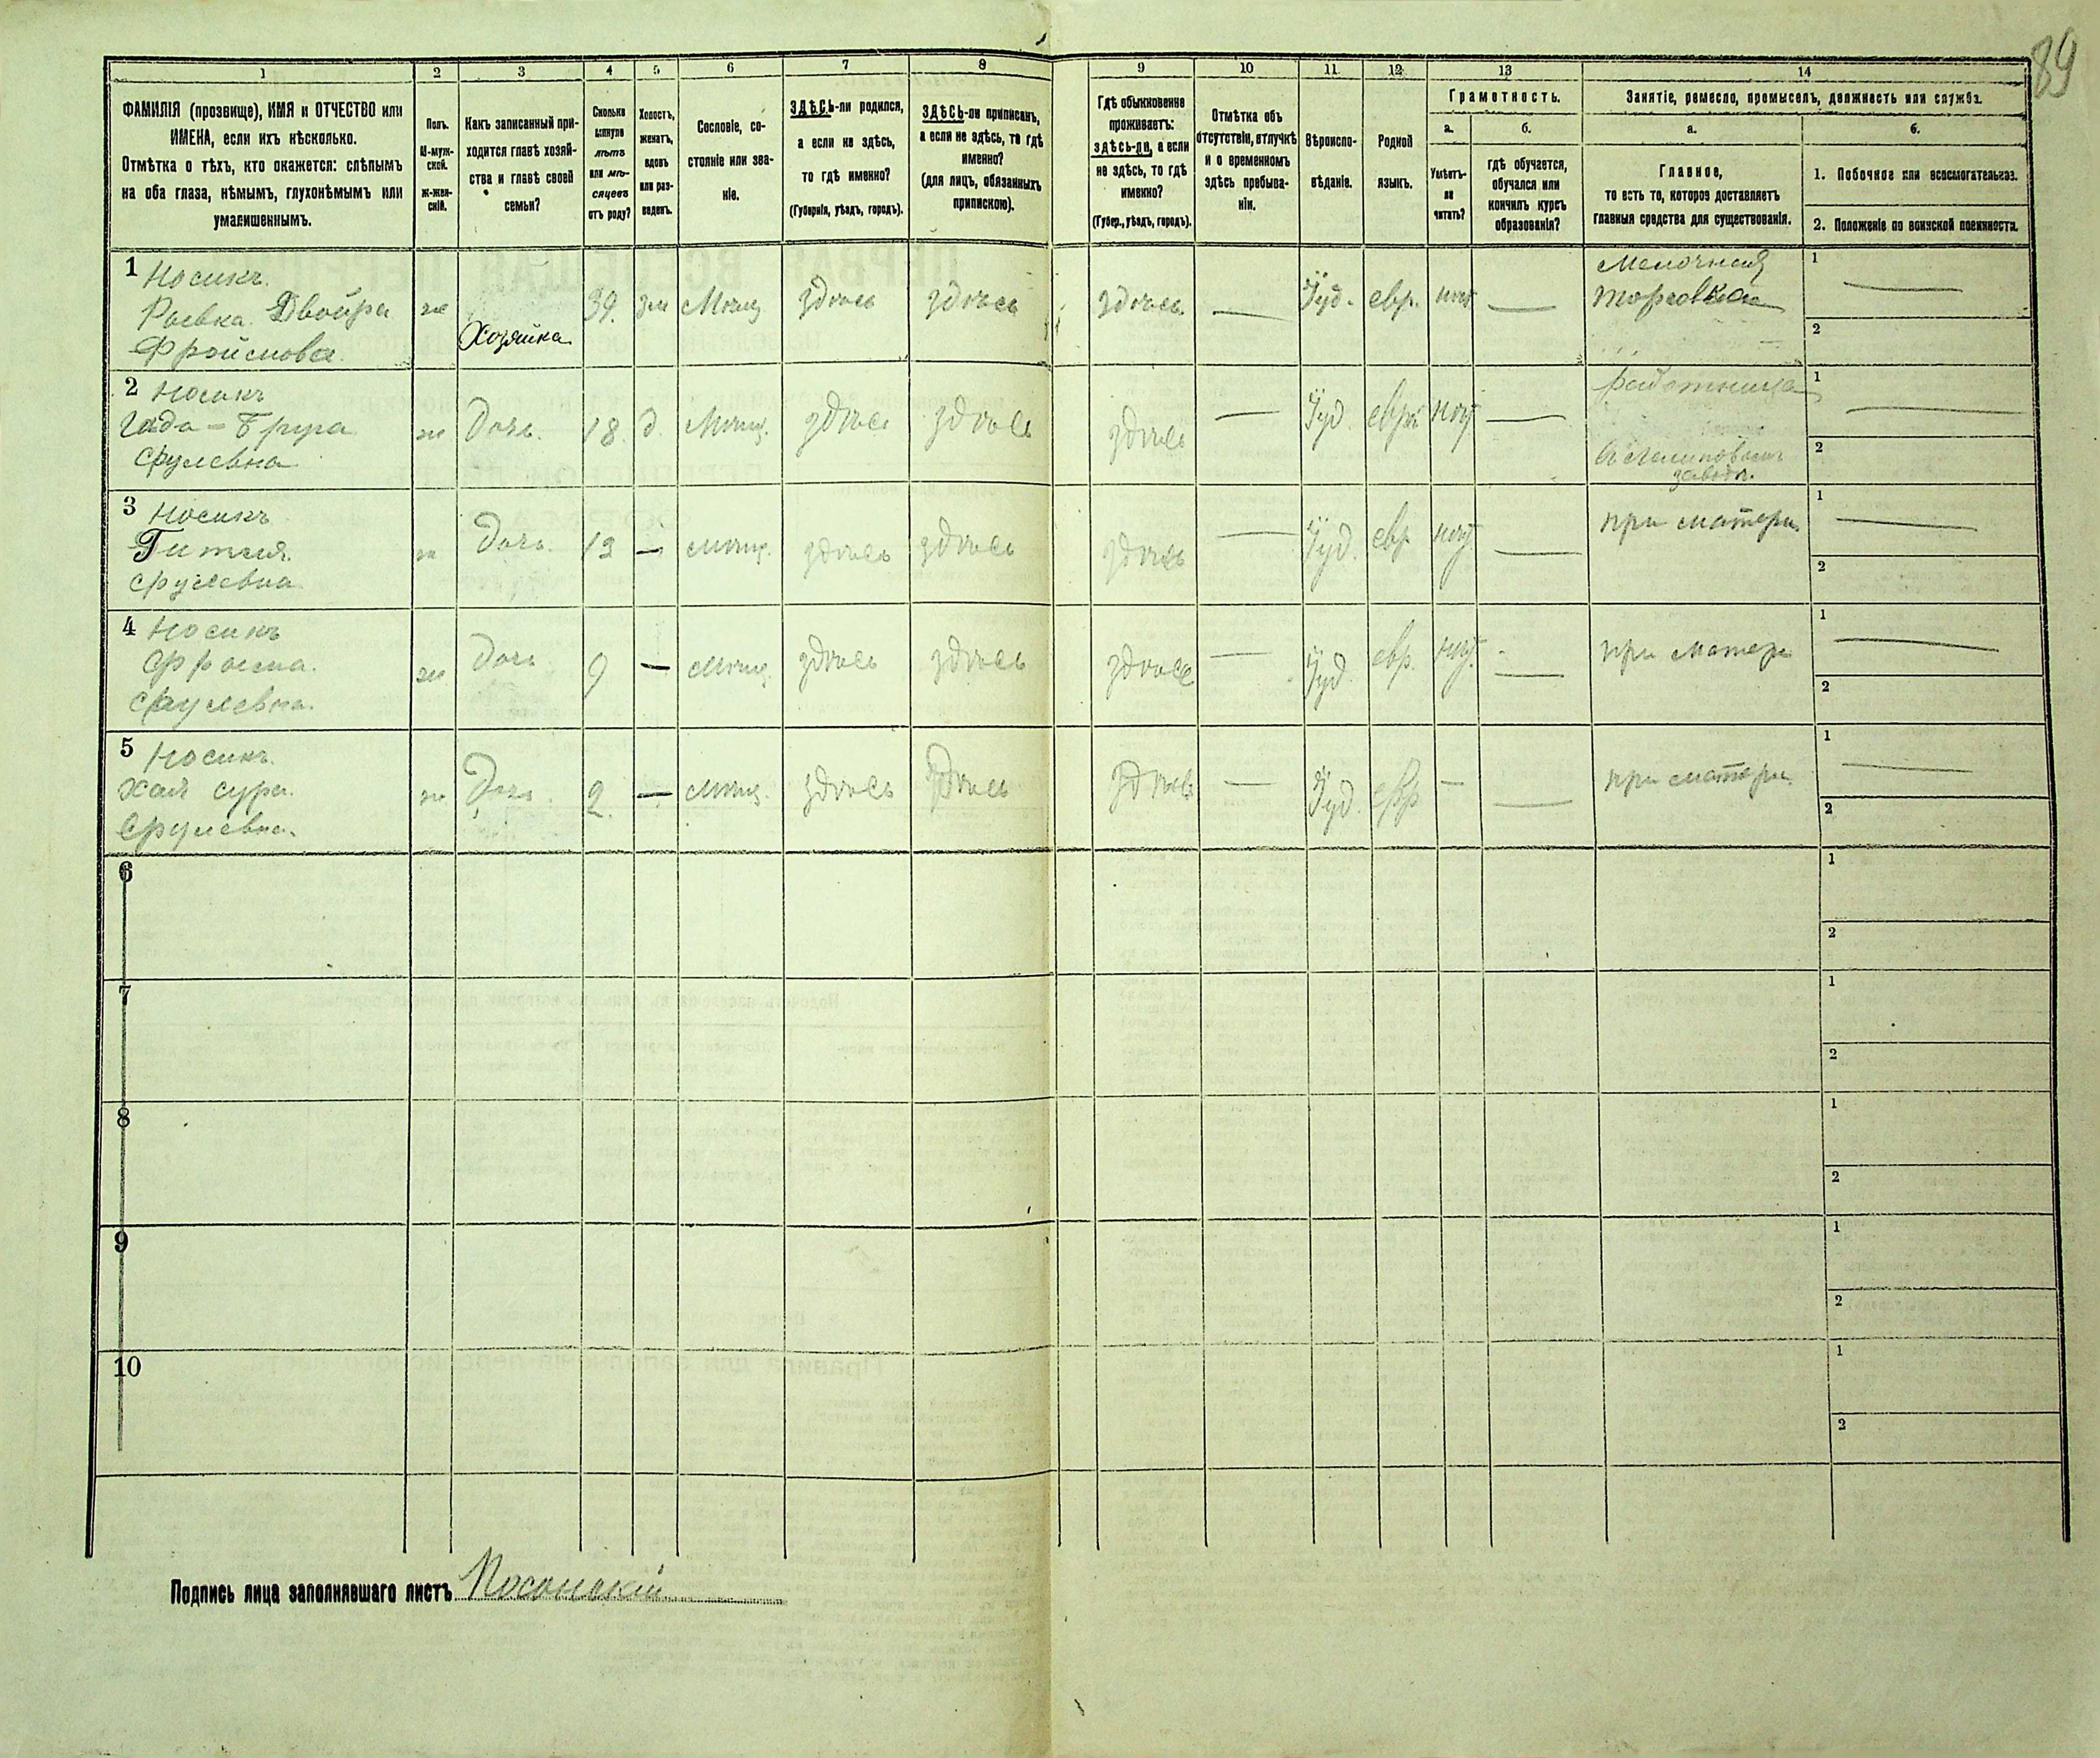 89
1 2 3 4 5 6 7 8 9 10 11 12 13 14
ФАМИЛІЯ (прозвище), ИМЯ и ОТЧЕСТВО или
ИМЕНА, если ихъ нѣсколько.
Отмѣтка о тѣхъ, кто окажется: слѣпымъ
на оба глаза, нѣмымъ, глухонѣмымъ или
умалишеннымъ.
Полъ.
М-муж-
ской.
Ж-жен-
скій.
Какъ записанный при-
ходится главѣ хозяй-
ства и главѣ своей
семьи?
Сколько
минуло
лѣтъ
или мѣ-
сяцевъ
отъ роду?
Холостъ,
женатъ,
вдовъ
или раз-
веденъ.
Сословіе, со-
стояніе или зва-
ніе.
ЗДѢСЬ-ли родился,
а если не здѣсь,
то гдѣ именно?
(Губернія, уѣздъ, городъ).
ЗДѢСЬ-ли приписанъ,
а если не здѣсь, то гдѣ
именно?
(для лицъ, обязанныхъ
припискою).
Гдѣ обыкновенно
проживаетъ:
здѣсь-ли, а если
не здѣсь, то гдѣ
именно?
(Губер., уѣздъ, городъ).
Отмѣтка объ
отсутствіи, отлучкѣ
и о временномъ
здѣсь пребыва-
ніи.
Вѣроиспо-
вѣданіе.
Родной
языкъ.
Грамотность.
а.
Умѣетъ-
ли
читать?
б.
гдѣ обучается,
обучался или
кончилъ курсъ
образованія?
Занятіе, ремесло, промыселъ, должность или служба.
а.
Главное,
то есть то, которое доставляетъ
главныя средства для существованія.
б.
1. Побочное или вспомогательное.
2. Положеніе по воинской повинности.
1 Носикъ.
Ривка Двойра
Фроймова
ж
Хозяйка
39.
зам
Мѣщ
здѣсь
здѣсь
здѣсь.
—
Іуд.
евр.
нѣт
—
Мелочная
торговка
1 —
2
2 Носикъ
Срулевна
ж
Дочь.
18.
д.
Мѣщ.
здѣсь
здѣсь
здѣсь
—
Іуд.
евр.
нѣт
—
работница
заводѣ.
1 —
2
3 Носикъ
Гитля
Срулевна
ж
Дочь.
13
—
Мѣщ.
здѣсь
здѣсь
здѣсь
—
Іуд.
евр
нѣт
—
при матери
1 —
2
4 Носикъ
Срулевна.
ж
Дочь
9
—
Мѣщ.
здѣсь
здѣсь
здѣсь
—
Іуд
евр.
нѣт.
—
при матери
1 —
2
5 Носикъ.
Хая сура.
Срулевна.
ж
Дочь.
2.
—
Мѣщ.
здѣсь
здѣсь
здѣсь
—
Іуд.
евр
—
—
при матери.
1 —
2
6
1
2
7
1
2
8
1
2
9
1
2
10
1
2
Подпись лица заполнявшаго листъ